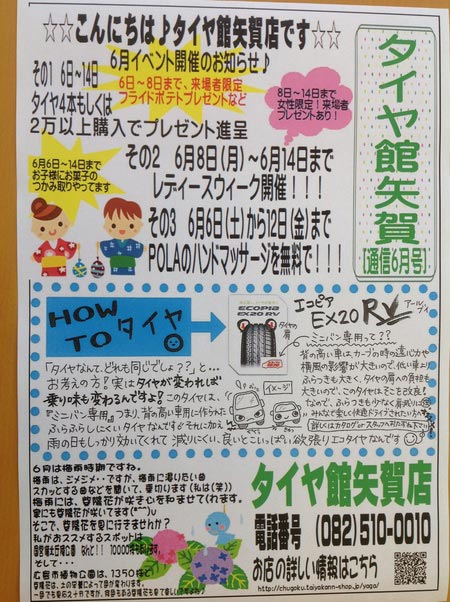 ☆☆こんにちは♪タイヤ館矢賀店です☆☆
6月イベント開催のお知らせ♪
その1 6日〜14日
タイヤ4本もしくは
2万以上購入でプレゼント進呈
6日〜8日まで、来場者限定
フライドポテトプレゼントなど
8日〜14日まで
女性限定!来場者
プレゼントあり!
その2 6月8日(月)〜6月14日まで
レディースウィーク開催!!!
6月6日〜14日まで
お子様にお菓子の
つかみ取りやってます
その3 6月6日(土)から12日(金)まで
POLAのハンドマッサージを無料で!!!
タイヤ館矢賀
【通信6月号】
HOW
TO タイヤ
ECOPIA
EX20 RV
タイヤの肩
エコピア
EX20 RV
アールブイ
「タイヤなんて、どれも同じでしょ??」と…
お考えの方!実はタイヤが変われば
乗り味も変わるんですよ!このタイヤは、
『ミニバン専用』。つまり、背の高い車用に作られた
ふらふらしにくいタイヤなんですがそれに加え
雨の日もしっかり効いてくれて減りにくい、良いとこいっぱい欲張りエコタイヤなんです
イメージ
ミニバン専用って??
背の高い車は、カーブの時の遠心力や
横風の影響が大きいので、低い車より
ふらつきも大きく、タイヤの肩への負担も
大きいので、このタイヤはそこを改良!
なので、ふらつきも少なく
みんなで楽しく快適ドライブされたい方へ
詳しくはカタログorスタッフへお尋ね下さい
6月は梅雨時期ですね。
梅雨は、ジメジメ…ですが、梅雨に濁りない曲
スカッとする曲などを聞いて、乗切ります(私は(笑))
梅雨には、紫陽花が咲き心を和ませてくれます。
家にも紫陽花が咲いてます(*^^)v
そこで、紫陽花を見に行きませんか?
私がおススメするスポットは
そして・・・
広島市植物公園は、1350株で!
タイヤ館矢賀店
電話番号 (082)510-0010
お店の詳しい情報はこちら
http://chugoku.taiyakann-shop.jp/yaga/